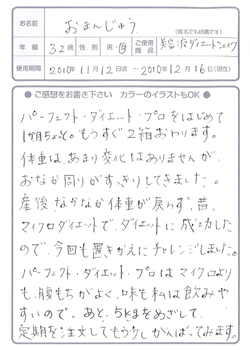 お名前 おまんじゅう (匿名でも結構です)
年齢 32歳 性別 男・女 ご使用商品 美容液ダイエットシェイク
使用期間 2010年11月12日頃 ~ 2010年12月16日(現在)
●ご感想をお書き下さい カラーのイラストもOK●
パーフェクト・ダイエット・プロをはじめて
1か月ちょっと。もうすぐ2箱おわります。
体重は、あまり変化はありませんが、
おなか周りがすっきりしてきました。
産後、なかなか体重が戻らず、昔、
マイクロダイエットで、ダイエットに成功した
ので、今回も置きかえにチャレンジしました。
パーフェクト・ダイエット・プロはマイクロより
も、腹もちがよく、味も私は飲みや
すいので、あと、5kgをめざして、
定期を注文してもう少しがんばってみます。